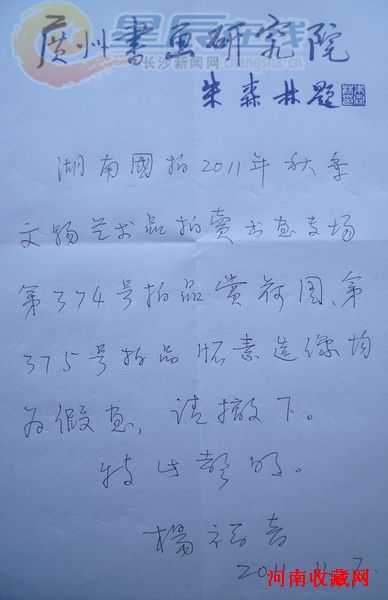 广州书画研究院
长沙新闻网
changsha.cn
朱森林题
湖南國拍2011年秋季
文物艺术品拍賣书画专场
第374号拍品赏荷图、第
375号拍品怀素造像均
为假画，请撤下。
特此声明。
楊福音
2011.11.7.
河南收藏网